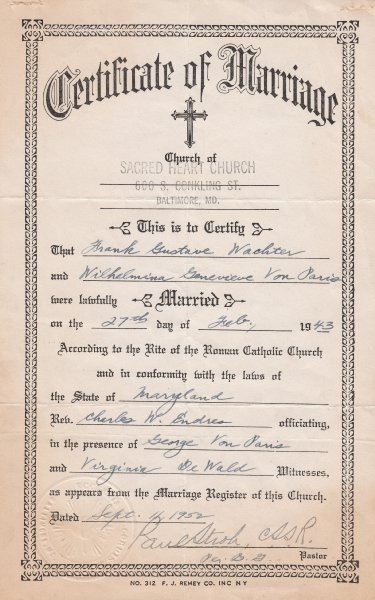 Certificate of Marriage
Church of
SACRED HEART CHURCH
600 S. CONKLING ST.
BALTIMORE, MD.
This is to Certify
That Frank Gustave Wachter
and Wilhelmina Genevieve Von Paris
were lawfully Married
on the 27th day of Feb, 1943
According to the Rite of the Roman Catholic Church
and in conformity with the laws of
the State of Maryland
Rev. Charles W. Endres officiating,
in the presence of George Von Paris
and Virginia De Wald Witnesses,
as appears from the Marriage Register of this Church.
Dated Sept. 1952
Paul Stroh, CSSR.
Pastor
NO. 312 F. J. REMEY CO. INC N Y